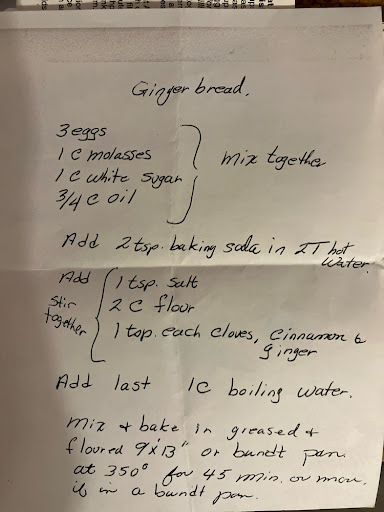 Ginger bread.
3 eggs
1 C molasses
1 C white sugar
3/4 C oil
mix together
Add 2 tsp. baking soda in 2T hot water.
Add
stir together
1 tsp. salt
2 C flour
1 tsp. each cloves, cinnamon & ginger
Add last 1C boiling water.
Mix & bake in greased &
floured 9"x13" or bundt pan
at 350° for 45 min. or more
if in a bundt pan.